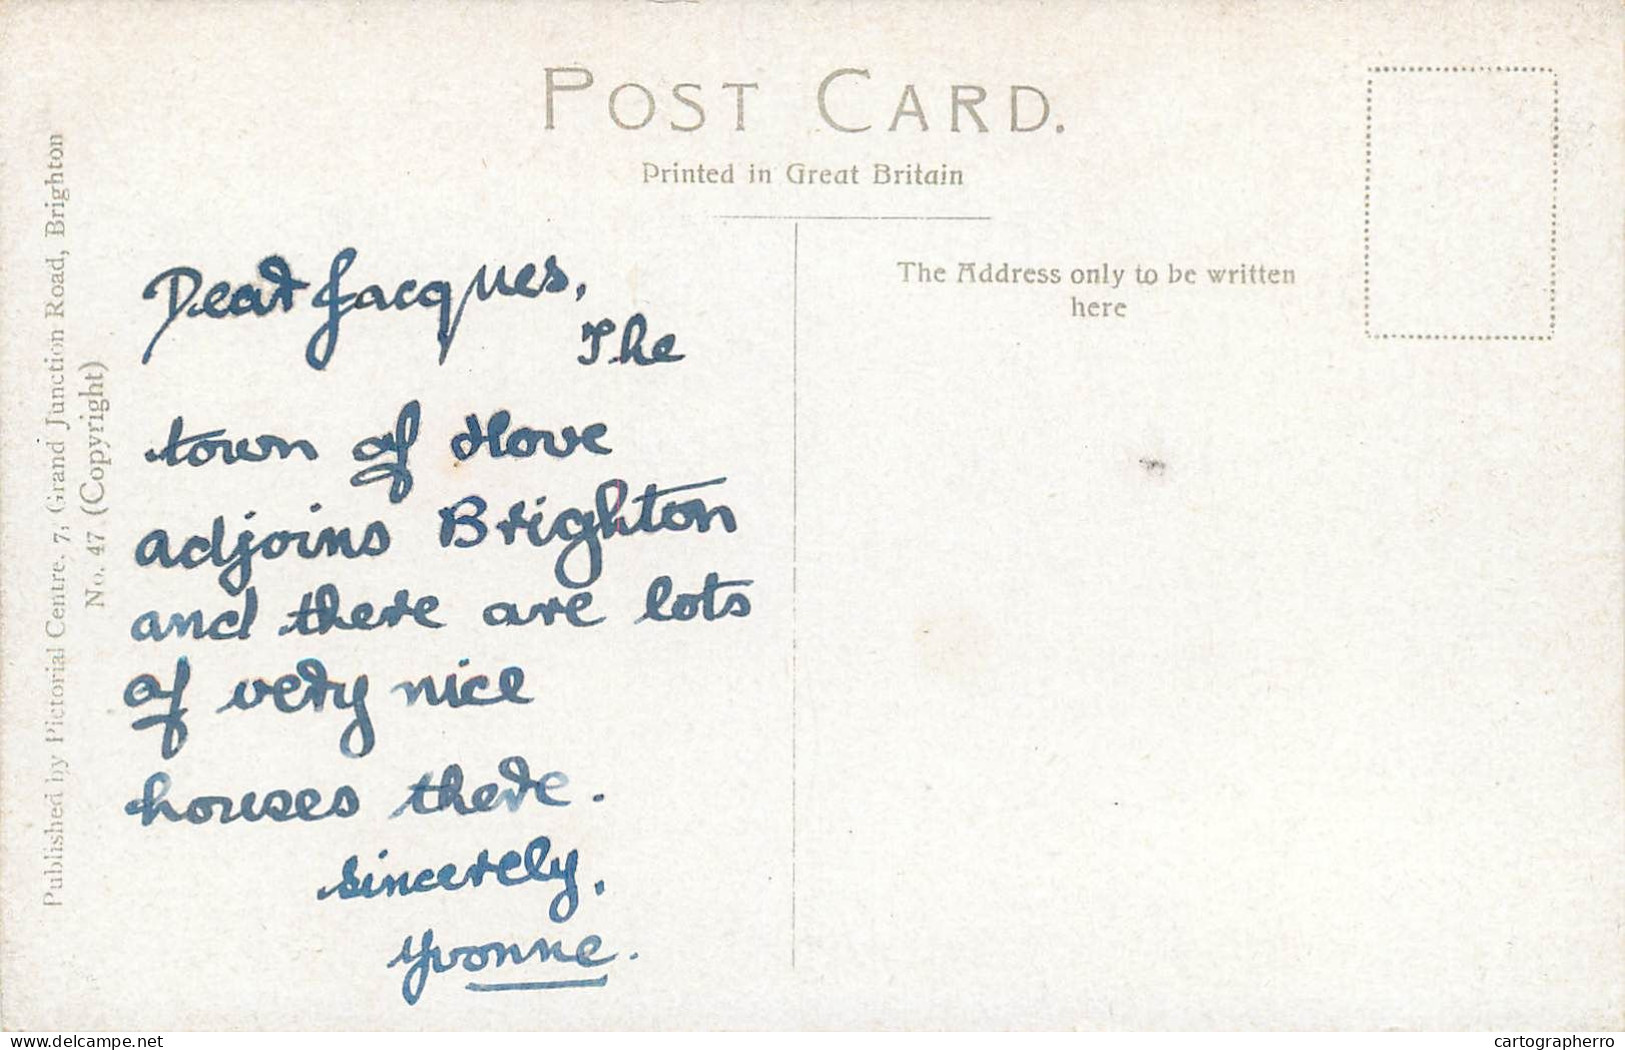 POST CARD.
Printed in Great Britain
The Address only to be written
here
Published by Pictorial Centre, 7, Grand Junction Road, Brighton
No. 47 (Copyright)
Dear Jacques,
The
town of Hove
adjoins Brighton
and there are lots
of very nice
houses there.
sincerely,
Yvonne.
delcampe.net
cartographerro